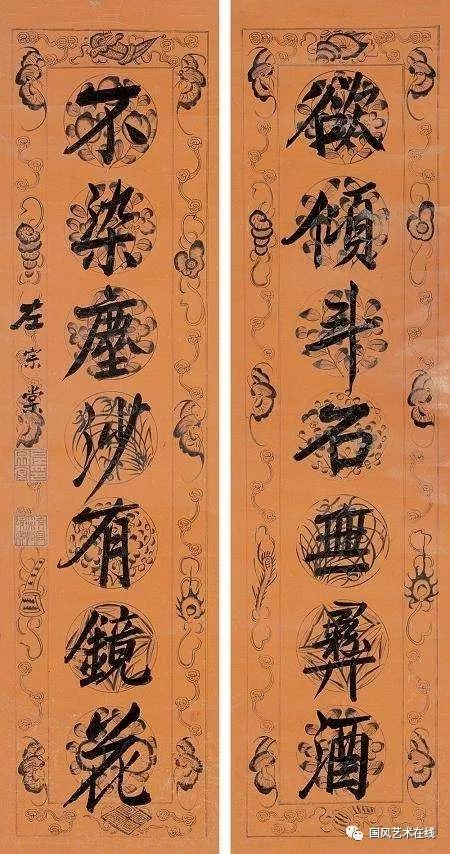 欲傾斗石無彞酒
不染塵沙有鏡花
左宗棠
国风艺术在线